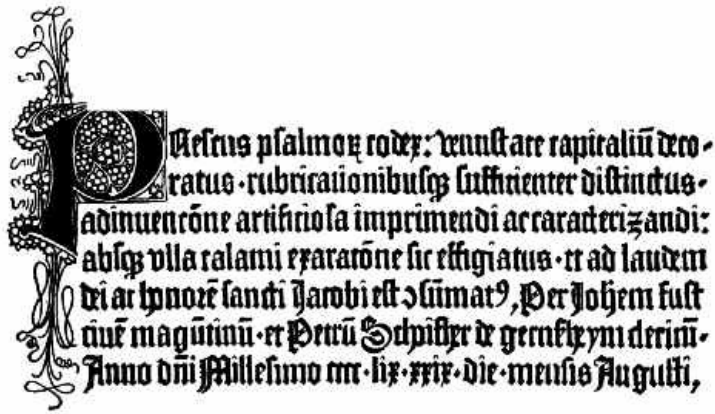 Presens psalmoꝝ codex: venustate capitaliū deco-
ratus· rubricationibusqꝫ sufficienter distinctus·
adinuencōne artificiosa imprimendi ac caracterizandi:
absqꝫ vlla calami exaracōne sic effigiatus· et ad laudem
dei ac honorē sancti Jacobi est ↄsūmatꝰ, Per Johem fust
ciuē magūtinū· et Petrū Schoiffher de gernssheym clericū·
Anno dn̄i Millesimo cccc· lix· xxix· die· mensis Augusti,